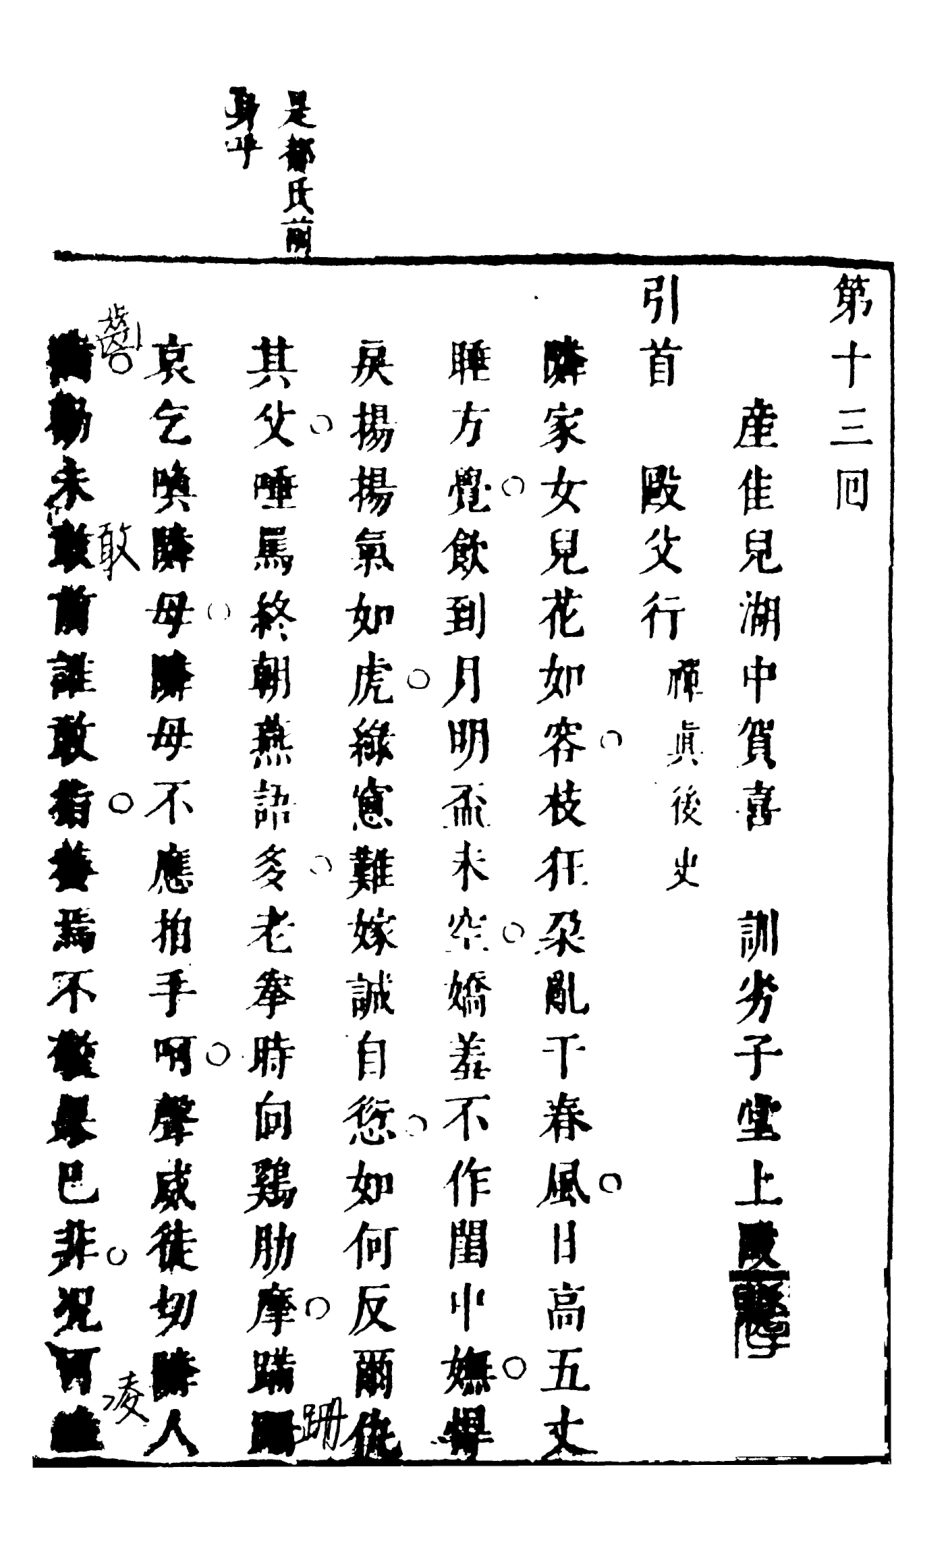 是都氏前
身乎
第十三回
產佳兒湖中賀喜 訓劣子堂上毆
引首 毆父行 禪真後史
隣家女兒花如容枝狂朶亂干春風日高五丈
睡方覺飲到月明盃未空嬌羞不作閨中嫵悍
戾揚揚氣如虎綠窻難嫁誠自愆如何反爾仇
其父唾罵終朝燕語多老拳時向鷄肋摩蹣跚
哀乞喚隣母隣母不應拍手呵聲威徒切隣人
齒 未敢前誰敢指 焉不 巴非况可凌
齒
敢
跚
凌